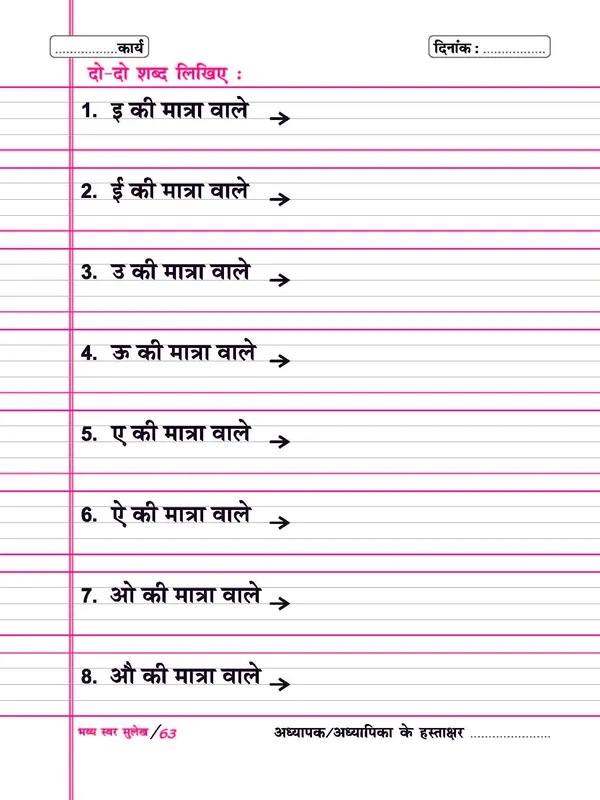 ..................कार्य दिनांक : ..................
दो-दो शब्द लिखिए :
1. इ की मात्रा वाले →
2. ई की मात्रा वाले →
3. उ की मात्रा वाले →
4. ऊ की मात्रा वाले →
5. ए की मात्रा वाले →
6. ऐ की मात्रा वाले →
7. ओ की मात्रा वाले →
8. औ की मात्रा वाले →
भव्य स्वर सुलेख/63 अध्यापक/अध्यापिका के हस्ताक्षर ......................